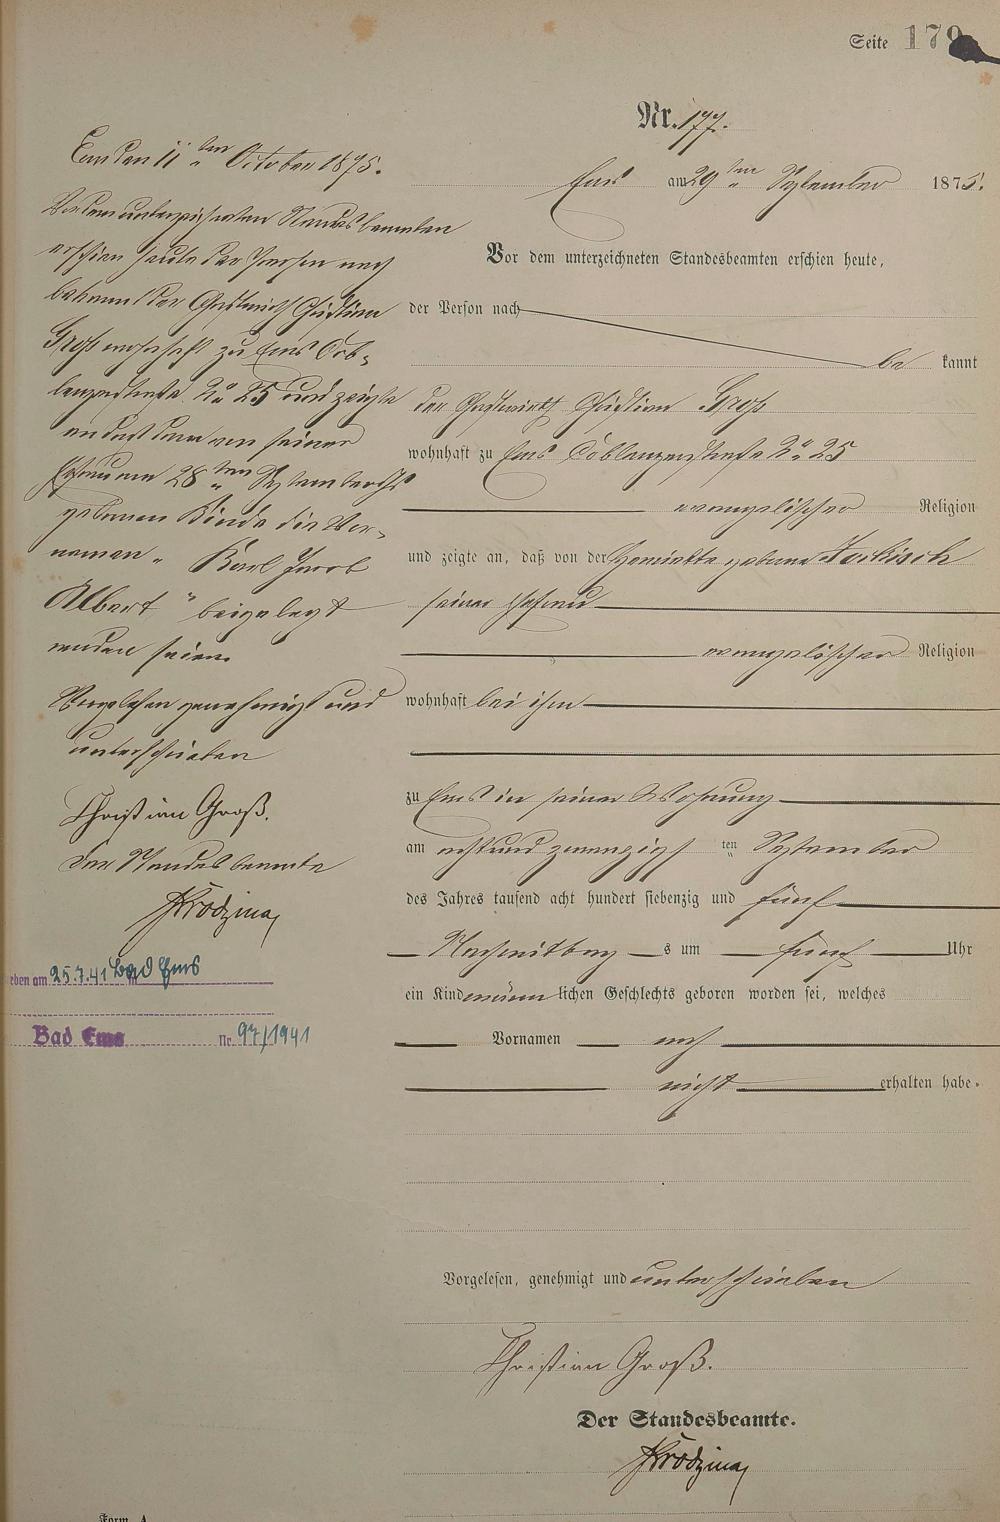 Seite 179
Nr. 177.
Ems am 29ten September 1875.
Vor dem unterzeichneten Standesbeamten erschien heute,
der Person nach
be kannt
der Gastwirth Christian Groß
wohnhaft zu Ems Coblenzerstraße No 25
evangelischer Religion
und zeigte an, daß von der Henriette geborne Jorkisch
seiner Ehefrau
evangelischer Religion
wohnhaft bei ihm
zu Ems in seiner Wohnung
am acht und zwanzigsten September
des Jahres tausend acht hundert siebenzig und fünf
Nachmittag s um fünf Uhr
ein Kind männlichen Geschlechts geboren worden sei, welches
Vornamen noch
nicht erhalten habe.
Vorgelesen, genehmigt und unterschrieben
Christian Groß.
Der Standesbeamte.
Krodzina
Form. A
Ems den 11ten October 1875.
Vor dem unterzeichneten Standesbeamten
erschien heute der Person nach
bekannt der Gastwirth Christian
Groß wohnhaft zu Ems Cob-
lenzerstraße No 25 und zeigte
an daß dem von seiner
Ehefrau am 28ten September
gebornen Kinde die Vor-
namen „Karl Jacob
Albert" beigelegt
worden seien.
Vorgelesen genehmigt und
unterschrieben
Christian Groß.
Der Standesbeamte
Krodzina
eben am 25.7.41 in Bad Ems
Bad Ems Nr. 97/1941